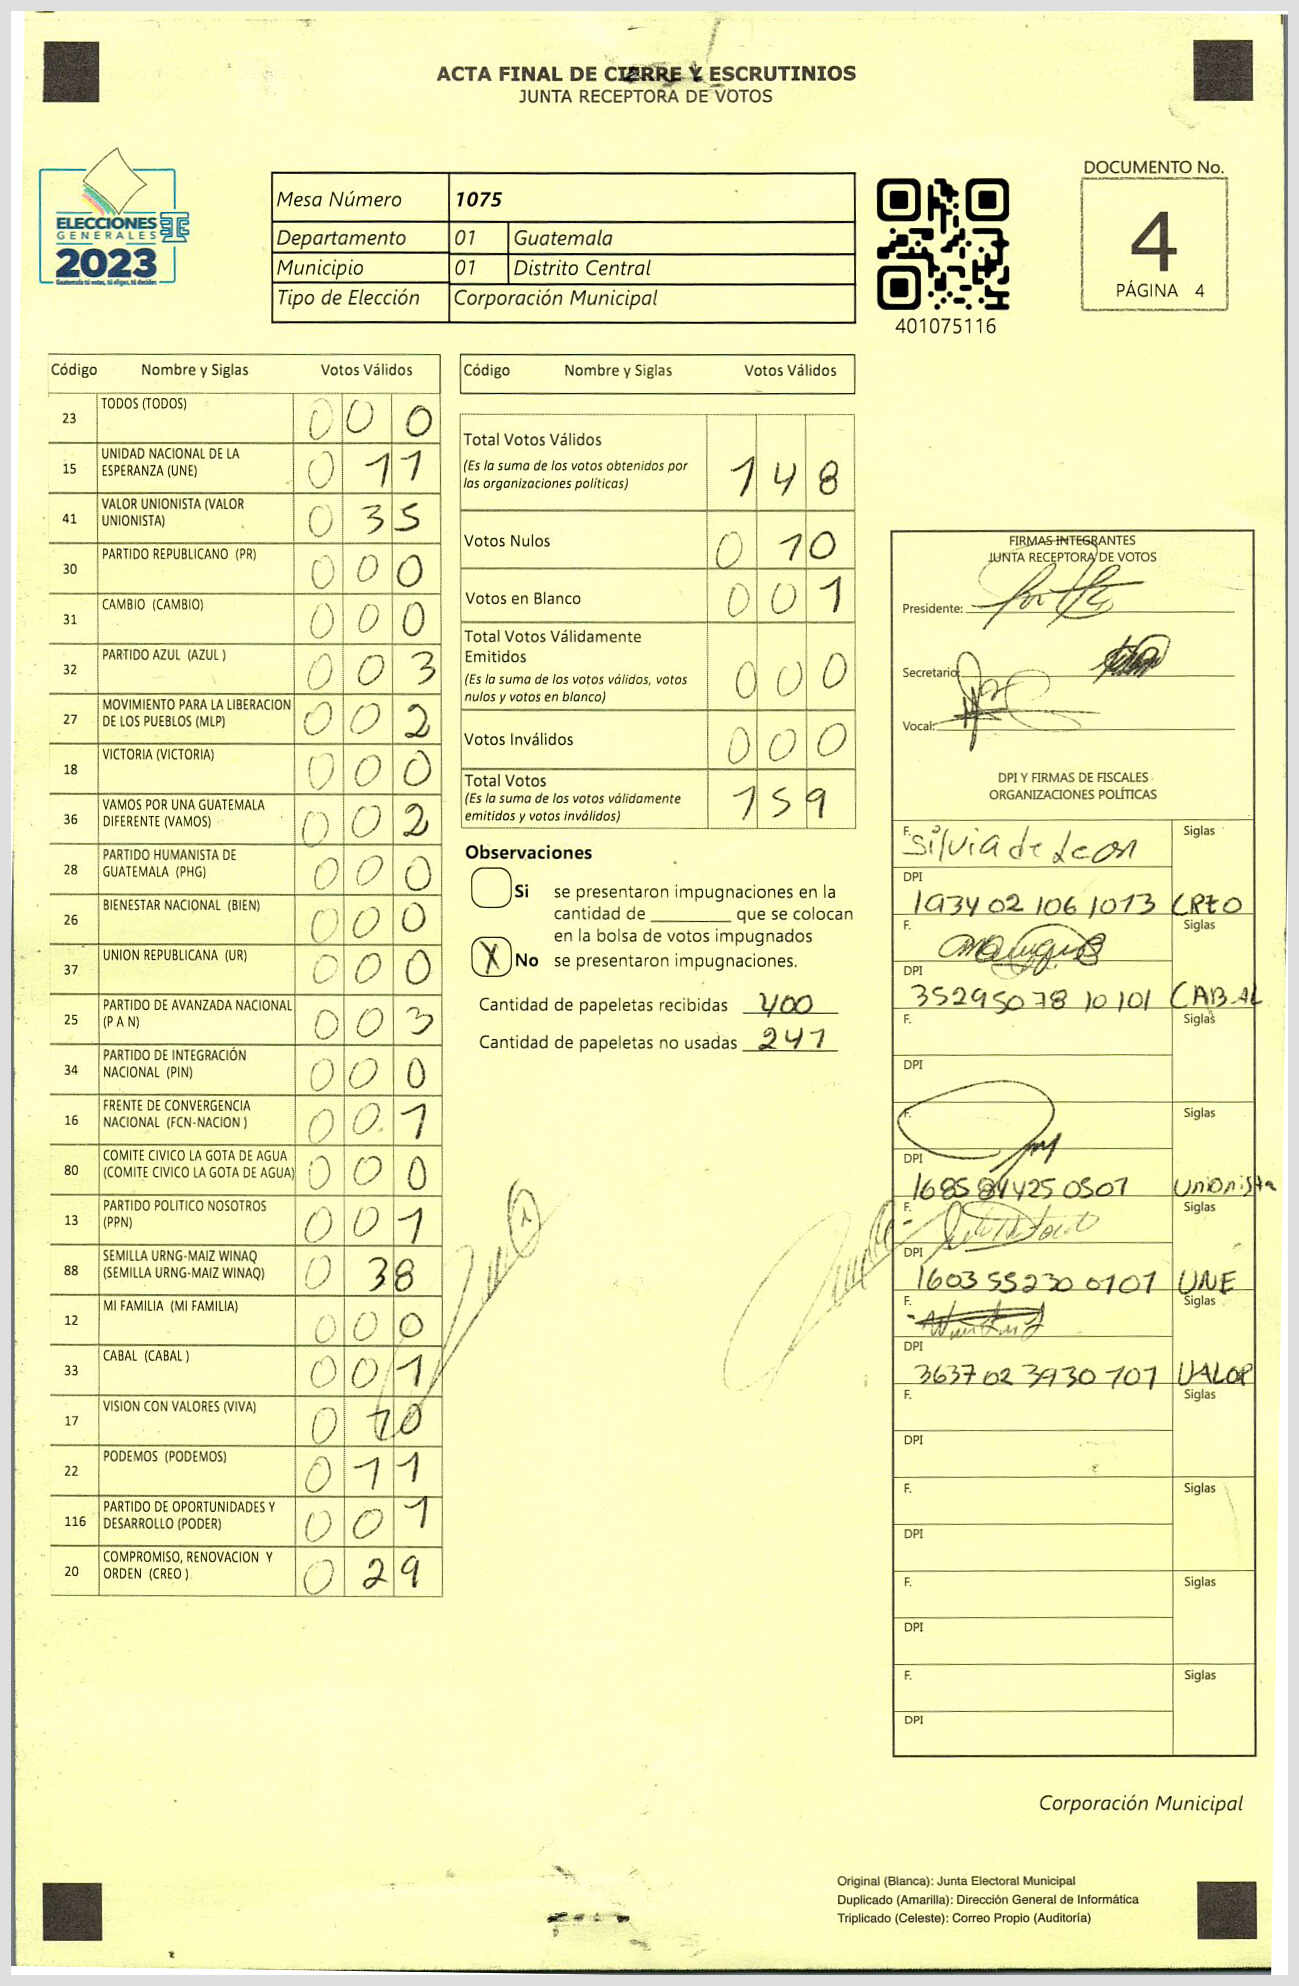 ACTA FINAL DE CIERRE Y ESCRUTINIOS
JUNTA RECEPTORA DE VOTOS
ELECCIONES
GENERALES
2023
Guatemala tú votas, tú eliges, tú decides
Mesa Número 1075
Departamento 01 Guatemala
Municipio 01 Distrito Central
Tipo de Elección Corporación Municipal
401075116
DOCUMENTO No.
4
PÁGINA 4
Código Nombre y Siglas Votos Válidos
23 TODOS (TODOS) 0 0 0
15 UNIDAD NACIONAL DE LA ESPERANZA (UNE) 0 1 1
41 VALOR UNIONISTA (VALOR UNIONISTA) 0 3 5
30 PARTIDO REPUBLICANO (PR) 0 0 0
31 CAMBIO (CAMBIO) 0 0 0
32 PARTIDO AZUL (AZUL ) 0 0 3
27 MOVIMIENTO PARA LA LIBERACION DE LOS PUEBLOS (MLP) 0 0 2
18 VICTORIA (VICTORIA) 0 0 0
36 VAMOS POR UNA GUATEMALA DIFERENTE (VAMOS) 0 0 2
28 PARTIDO HUMANISTA DE GUATEMALA (PHG) 0 0 0
26 BIENESTAR NACIONAL (BIEN) 0 0 0
37 UNION REPUBLICANA (UR) 0 0 0
25 PARTIDO DE AVANZADA NACIONAL (P A N) 0 0 3
34 PARTIDO DE INTEGRACIÓN NACIONAL (PIN) 0 0 0
16 FRENTE DE CONVERGENCIA NACIONAL (FCN-NACION ) 0 0 1
80 COMITE CIVICO LA GOTA DE AGUA (COMITE CIVICO LA GOTA DE AGUA) 0 0 0
13 PARTIDO POLITICO NOSOTROS (PPN) 0 0 1
88 SEMILLA URNG-MAIZ WINAQ (SEMILLA URNG-MAIZ WINAQ) 0 3 8
12 MI FAMILIA (MI FAMILIA) 0 0 0
33 CABAL (CABAL ) 0 0 1
17 VISION CON VALORES (VIVA) 0 1 0
22 PODEMOS (PODEMOS) 0 1 1
116 PARTIDO DE OPORTUNIDADES Y DESARROLLO (PODER) 0 0 1
20 COMPROMISO, RENOVACION Y ORDEN (CREO ) 0 2 9
Código Nombre y Siglas Votos Válidos
Total Votos Válidos 1 4 8
(Es la suma de los votos obtenidos por
las organizaciones políticas)
Votos Nulos 0 1 0
Votos en Blanco 0 0 1
Total Votos Válidamente
Emitidos 0 0 0
(Es la suma de los votos válidos, votos
nulos y votos en blanco)
Votos Inválidos 0 0 0
Total Votos 1 5 9
(Es la suma de los votos válidamente
emitidos y votos inválidos)
Observaciones
Si se presentaron impugnaciones en la
cantidad de ________ que se colocan
en la bolsa de votos impugnados
X No se presentaron impugnaciones.
Cantidad de papeletas recibidas 400
Cantidad de papeletas no usadas 241
FIRMAS INTEGRANTES
JUNTA RECEPTORA DE VOTOS
Presidente:
Secretario:
Vocal:
DPI Y FIRMAS DE FISCALES
ORGANIZACIONES POLÍTICAS
F. Silvia de Leon Siglas
DPI 1934 02 106 1013 CREO
F. Siglas
DPI 35295078 10 101 CABAL
F. Siglas
DPI
F. Siglas
DPI Unionista
F. Siglas
DPI 1603 55230 0101 UNE
F. Siglas
DPI 3637 02 3930 101 VALOR
F. Siglas
DPI
F. Siglas
DPI
F. Siglas
DPI
F. Siglas
DPI
Corporación Municipal
Original (Blanca): Junta Electoral Municipal
Duplicado (Amarilla): Dirección General de Informática
Triplicado (Celeste): Correo Propio (Auditoría)